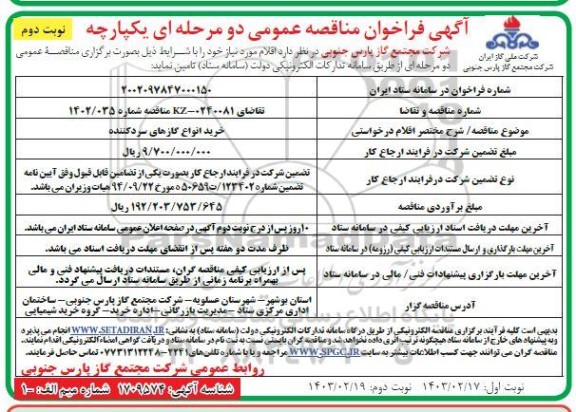 آگهی فراخوان مناقصه عمومی دو مرحله ای یکپارچه
نوبت دوم
شرکت ملی گاز ایران
شرکت مجتمع گاز پارس جنوبی
شرکت مجتمع گاز پارس جنوبی در نظر دارد اقلام مورد نیاز خود را با شرایط ذیل بصورت برگزاری مناقصه عمومی
دو مرحله ای از طریق سامانه تدارکات الکترونیکی دولت (سامانه ستاد) تامین نماید:
شماره فراخوان در سامانه ستاد ایران
۲۰۰۲۰۹۷۸۴۷۰۰۰۱۵۰
شماره مناقصه و تقاضا
تقاضای KZ-۰۲۴۰۰۸۱ مناقصه شماره ۱۴۰۲/۰۳۵
موضوع مناقصه/ شرح مختصر اقلام درخواستی
خرید انواع گازهای سردکننده
مبلغ تضمین شرکت در فرایند ارجاع کار
۹/۷۰۰/۰۰۰/۰۰۰ ریال
نوع تضمین شرکت درفرایند ارجاع کار
تضمین شرکت در فرایند ارجاع کار بصورت یکی از تضامین قابل قبول وفق آیین نامه
تضمین شماره ۱۲۳۴۰۲/ت۵۰۶۵۹ ه مورخ ۹۴/۰۹/۲۲ هیات وزیران می باشد.
مبلغ برآوردی مناقصه
۱۹۲/۲۰۳/۷۵۳/۶۴۵ ریال
آخرین مهلت دریافت اسناد ارزیابی کیفی در سامانه ستاد
۱۰روز پس از درج نوبت دوم آگهی در صفحه اعلان عمومی سامانه ستاد ایران می باشد.
آخرین مهلت بارگذاری و ارسال مستندات ارزیابی کیفی (رزومه) در سامانه ستاد
ظرف مدت دو هفته پس از انقضای مهلت دریافت اسناد می باشد.
آخرین مهلت بارگزاری پیشنهادات فنی / مالی در سامانه ستاد
پس از ارزیابی کیفی مناقصه گران، مستندات دریافت پیشنهاد فنی و مالی
بهمراه برنامه زمانی از طریق سامانه ستاد ارسال می گردد.
آدرس مناقصه گزار
استان بوشهر – شهرستان عسلویه – شرکت مجتمع گاز پارس جنوبی – ساختمان
اداری مرکزی ستاد – مدیریت بازرگانی – اداره خرید – گروه خرید شیمیایی
بدیهی است کلیه فرآیند برگزاری مناقصه الکترونیکی از طریق درگاه سامانه تدارکات الکترونیکی دولت (سامانه ستاد) به نشانی: WWW.SETADIRAN.IR انجام می پذیرد
مناقصه گران می توانند جهت کسب اطلاعات بیشتر به سایت WWW.SPGC.IR مراجعه و یا با شماره تلفن های ۲۲۴۱-۰۷۷۳۱۳۱۲۲۴۸ تماس حاصل فرمایند.
روابط عمومی شرکت مجتمع گاز پارس جنوبی
نوبت اول: ۱۴۰۳/۰۲/۱۷ نوبت دوم: ۱۴۰۳/۰۲/۱۹
شناسه آگهی: ۱۷۰۹۵۷۴ شماره میم الف: ۱-